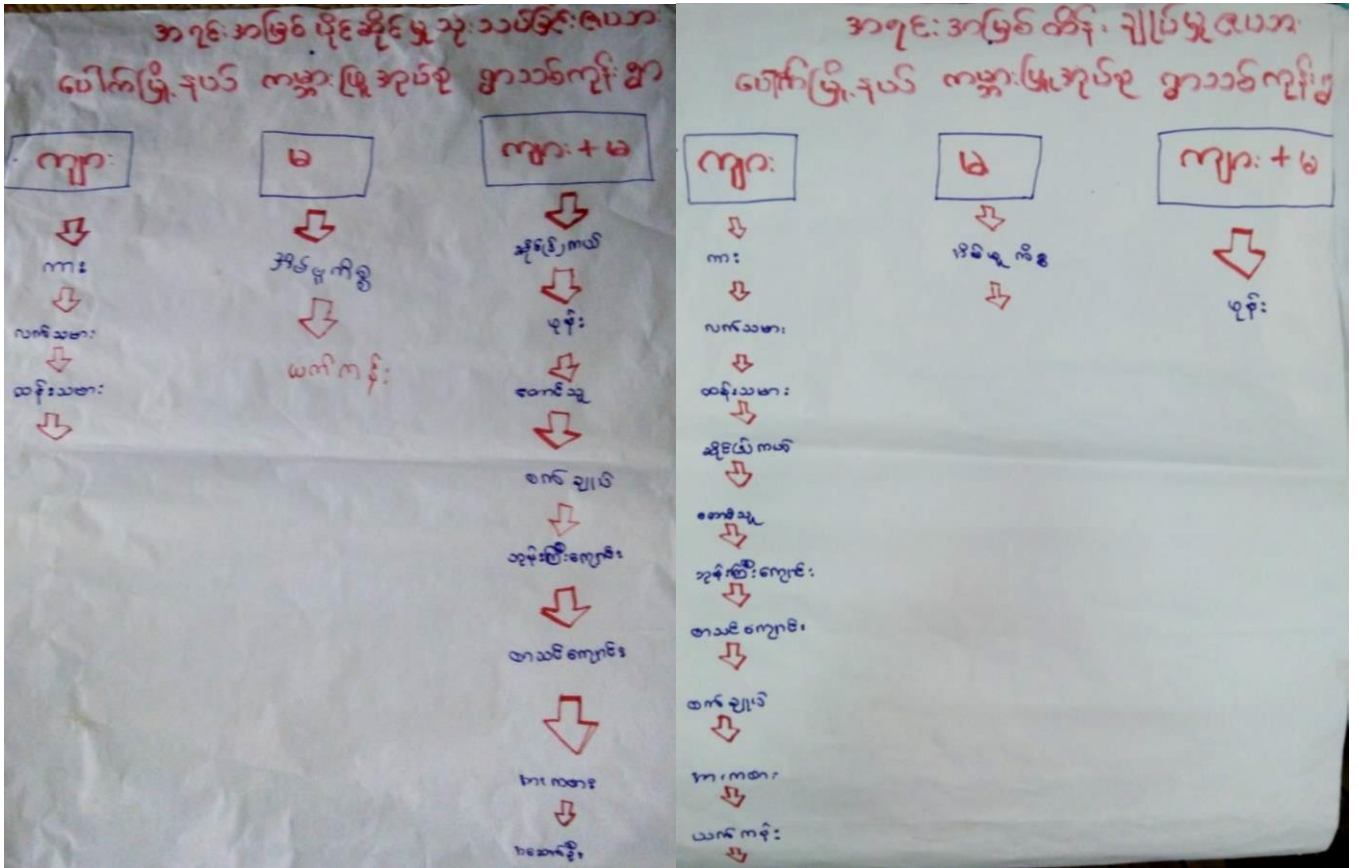 အရင်းအမြစ် ပိုင်ဆိုင်မှု သုံးသပ်ခြင်းဇယား
ပေါက်မြို့နယ် ကမ္ဘားဖြူအုပ်စု ရွာသစ်ကုန်းရွာ
ကျား
မ
ကျား + မ
ကား
လက်သမား
ထန်းသမား
အိမ်မှုကိစ္စ
ယက်ကန်း
ဆိုင်ကယ်
ဖုန်း
တောင်သူ
စက်ချုပ်
ဘုန်းကြီးကျောင်း
စာသင်ကျောင်း
အားကစား
အရင်းအမြစ် ထိန်းချုပ်မှုဇယား
ပေါက်မြို့နယ် ကမ္ဘားဖြူအုပ်စု ရွာသစ်ကုန်းရွာ
ကျား
မ
ကျား + မ
ကား
လက်သမား
ထန်းသမား
ဆိုင်ကယ်
တောင်သူ
ဘုန်းကြီးကျောင်း
စာသင်ကျောင်း
စက်ချုပ်
အားကစား
ယက်ကန်း
အိမ်မှုကိစ္စ
ဖုန်း